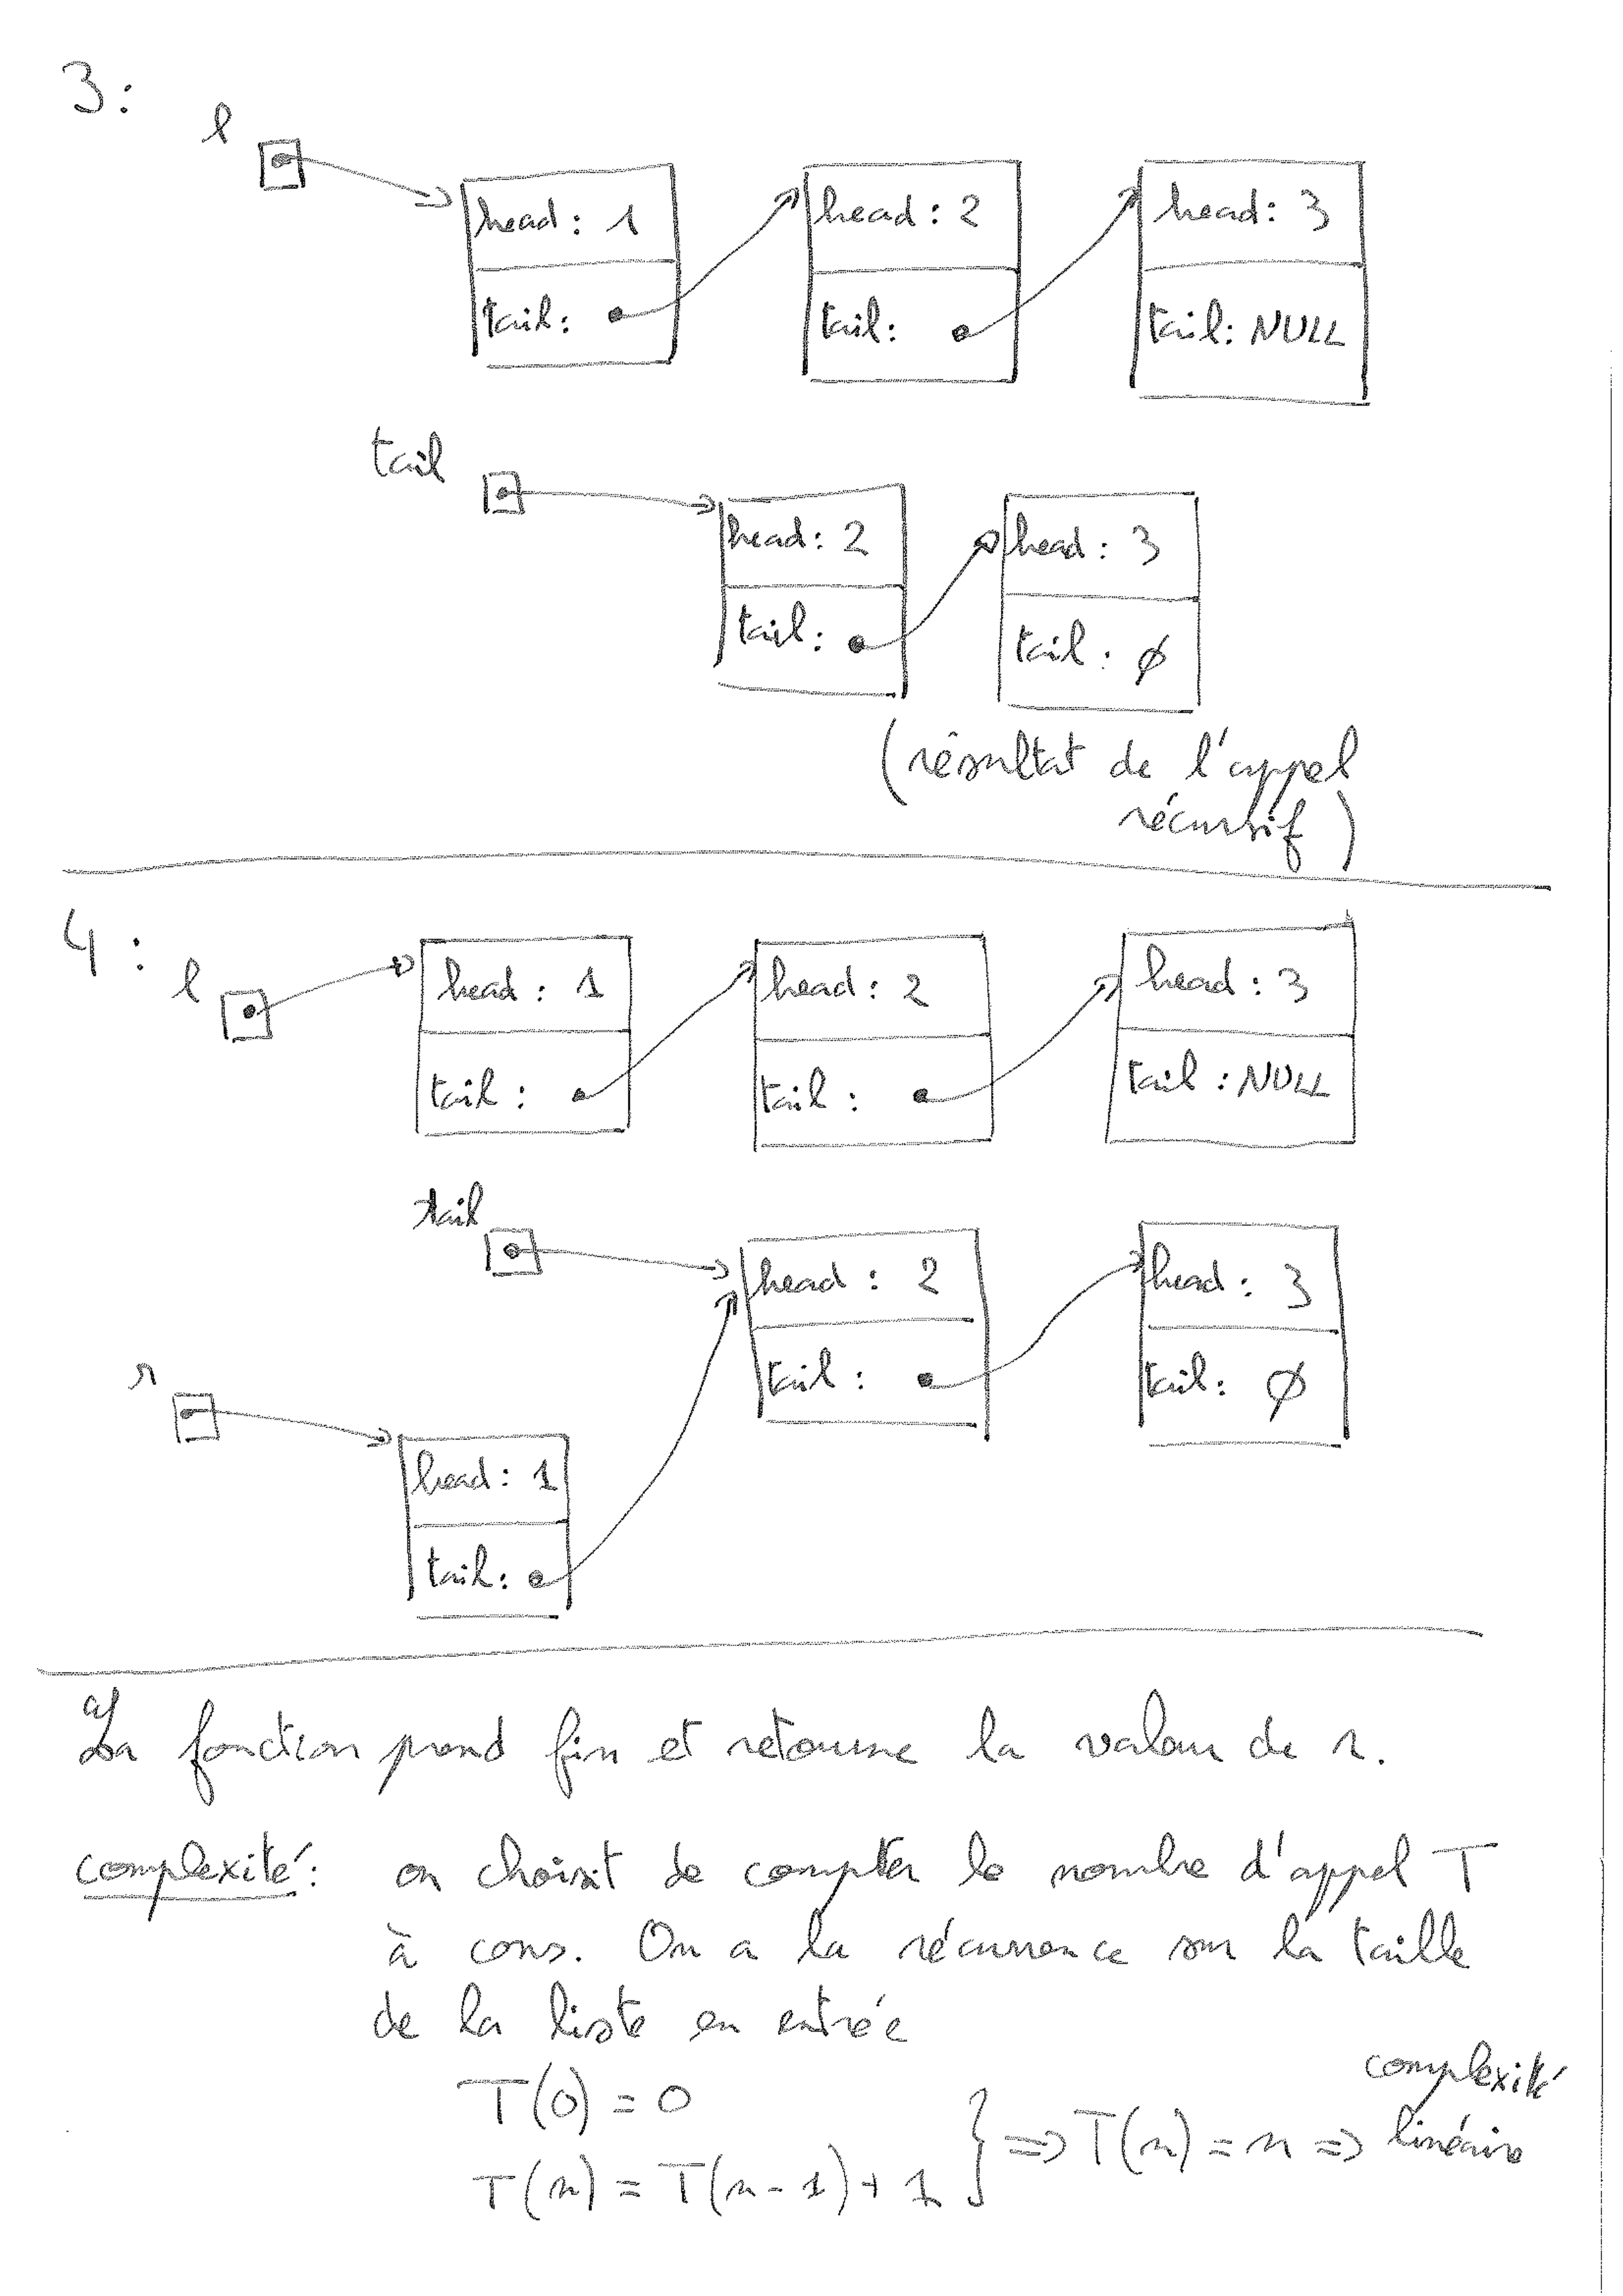 3:
l
head: 1
head: 2
head: 3
tail:
tail:
tail: NULL
tail
head: 2
head: 3
tail:
tail: ø
(résultat de l'appel
récursif)
4:
l
head: 1
head: 2
head: 3
tail:
tail:
tail: NULL
tail
head: 2
head: 3
tail:
tail: ø
r
head: 1
tail:
La fonction prend fin et retourne la valeur de r.
complexité: on choisit de compter le nombre d'appel T
à cons. On a la récurrence sur la taille
de la liste en entrée
T(0) = 0
T(n) = T(n-1) + 1 } => T(n) = n => complexité
linéaire